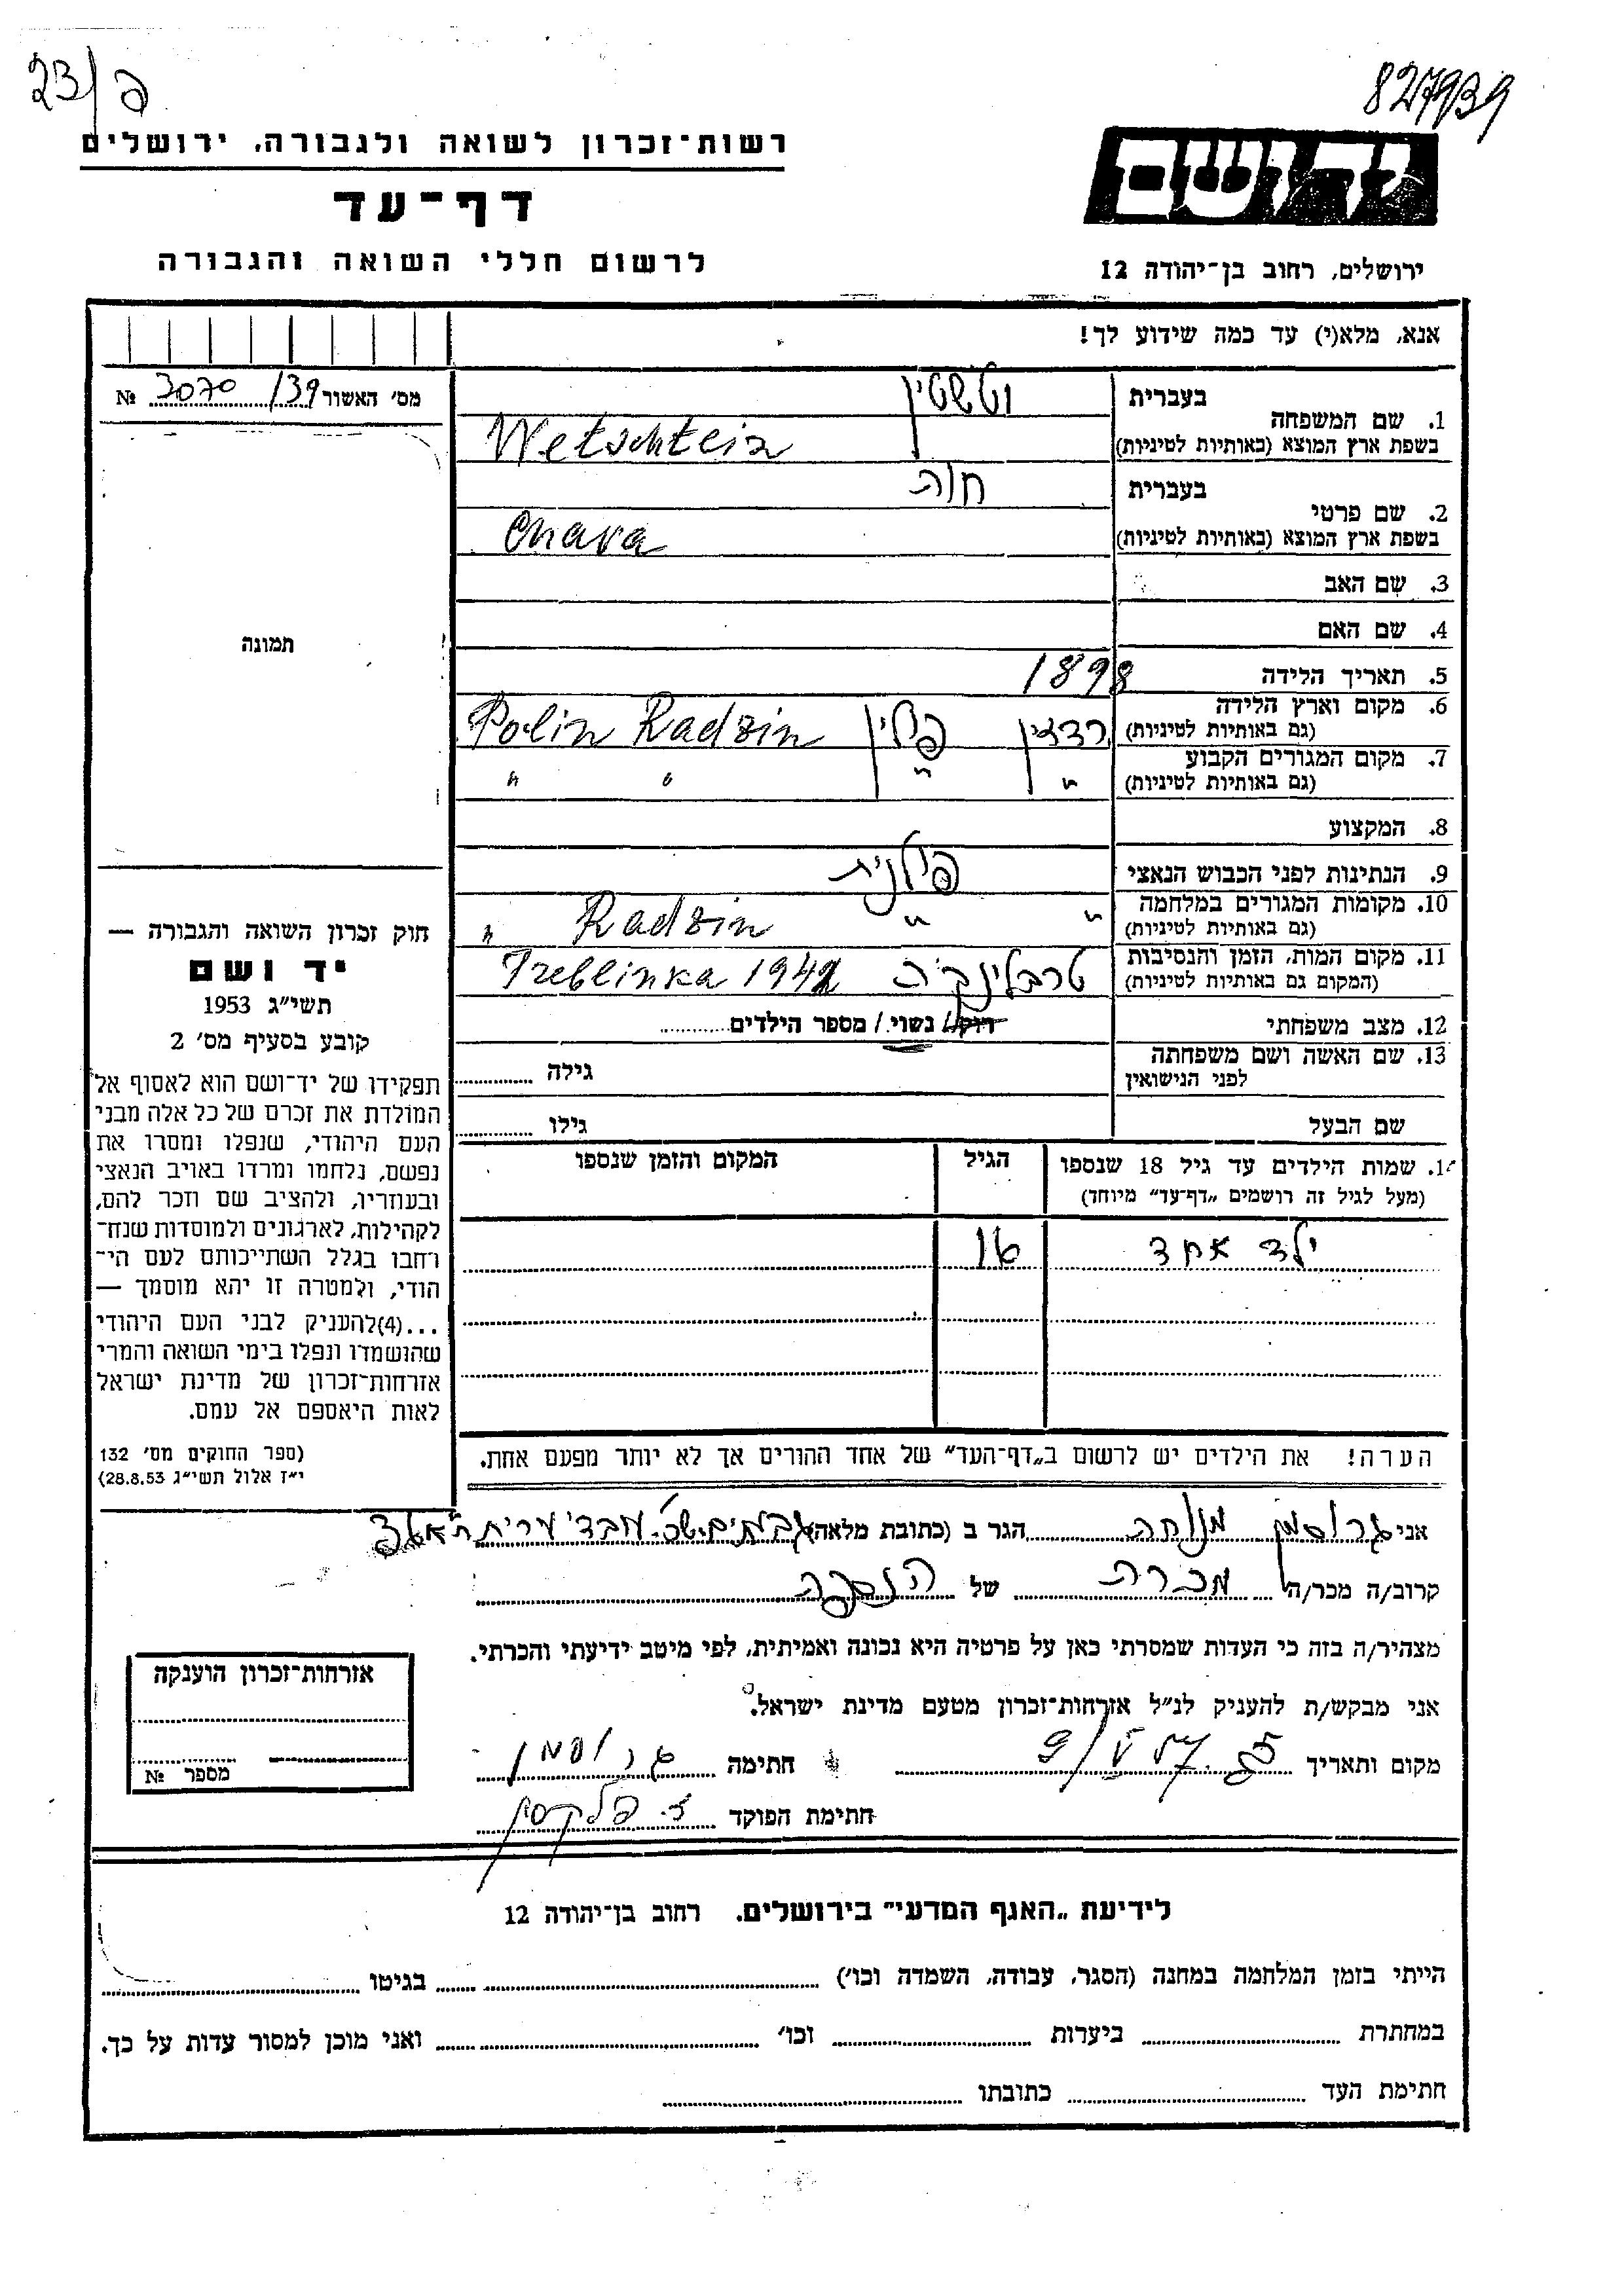 23/פ
827939
רשות-זכרון לשואה ולגבורה, ירושלים
דף-עד
לרשום חללי השואה והגבורה
יד ושם
ירושלים, רחוב בן-יהודה 12
אנא, מלא(י) עד כמה שידוע לך!
מס' האשור 3070/39 №
תמונה
1. שם המשפחה בעברית וטשטין
בשפת ארץ המוצא (באותיות לטיניות) Wetschtein
2. שם פרטי בעברית חוה
בשפת ארץ המוצא (באותיות לטיניות) Chava
3. שם האב
4. שם האם
5. תאריך הלידה 1898
6. מקום וארץ הלידה (גם באותיות לטיניות) רדזין פולין Polin Radzin
7. מקום המגורים הקבוע (גם באותיות לטיניות) " " " "
8. המקצוע
9. הנתינות לפני הכבוש הנאצי פולנית
10. מקומות המגורים במלחמה (גם באותיות לטיניות) " " Radzin "
11. מקום המות, הזמן והנסיבות (המקום גם באותיות לטיניות) טרבלינקה Treblinka 1942
12. מצב משפחתי רוק/ נשוי / מספר הילדים
13. שם האשה ושם משפחתה לפני הנישואין גילה
שם הבעל גילו
14. שמות הילדים עד גיל 18 שנספו
(מעל לגיל זה רושמים "דף-עד" מיוחד)
הגיל
המקום והזמן שנספו
ילד אחד
16
הערה! את הילדים יש לרשום ב"דף-העד" של אחד ההורים אך לא יותר מפעם אחת.
חוק זכרון השואה והגבורה —
יד ושם
תשי"ג 1953
קובע בסעיף מס' 2
תפקידו של יד-ושם הוא לאסוף אל
המולדת את זכרם של כל אלה מבני
העם היהודי, שנפלו ומסרו את
נפשם, נלחמו ומרדו באויב הנאצי
ובעוזריו, ולהציב שם וזכר להם,
לקהילות, לארגונים ולמוסדות שנח-
רחבו בגלל השתייכותם לעם הי-
הודי, ולמטרה זו יהא מוסמך —
...(4)להעניק לבני העם היהודי
שהושמדו ונפלו בימי השואה והמרי
אזרחות-זכרון של מדינת ישראל
לאות היאספם אל עמם.
(ספר החוקים מס' 132
י"ז אלול תשי"ג 28.8.53)
אני גרוסמן מנוחה הגר ב (כתובת מלאה) גבעתיים
קרוב/ה מכר/ה מכרת של הנספה
מצהיר/ה בזה כי העדות שמסרתי כאן על פרטיה היא נכונה ואמיתית, לפי מיטב ידיעתי והכרתי.
אני מבקש/ת להעניק לנ"ל אזרחות-זכרון מטעם מדינת ישראל.
מקום ותאריך 9/V 57 חתימה גרוסמן
חתימת הפוקד
אזרחות-זכרון הוענקה
מספר №
לידיעת "האגף המדעי" בירושלים, רחוב בן-יהודה 12
הייתי בזמן המלחמה במחנה (הסגר, עבודה, השמדה וכו') בגיטו
במחתרת ביערות וכו' ואני מוכן למסור עדות על כך.
חתימת העד כתובתו